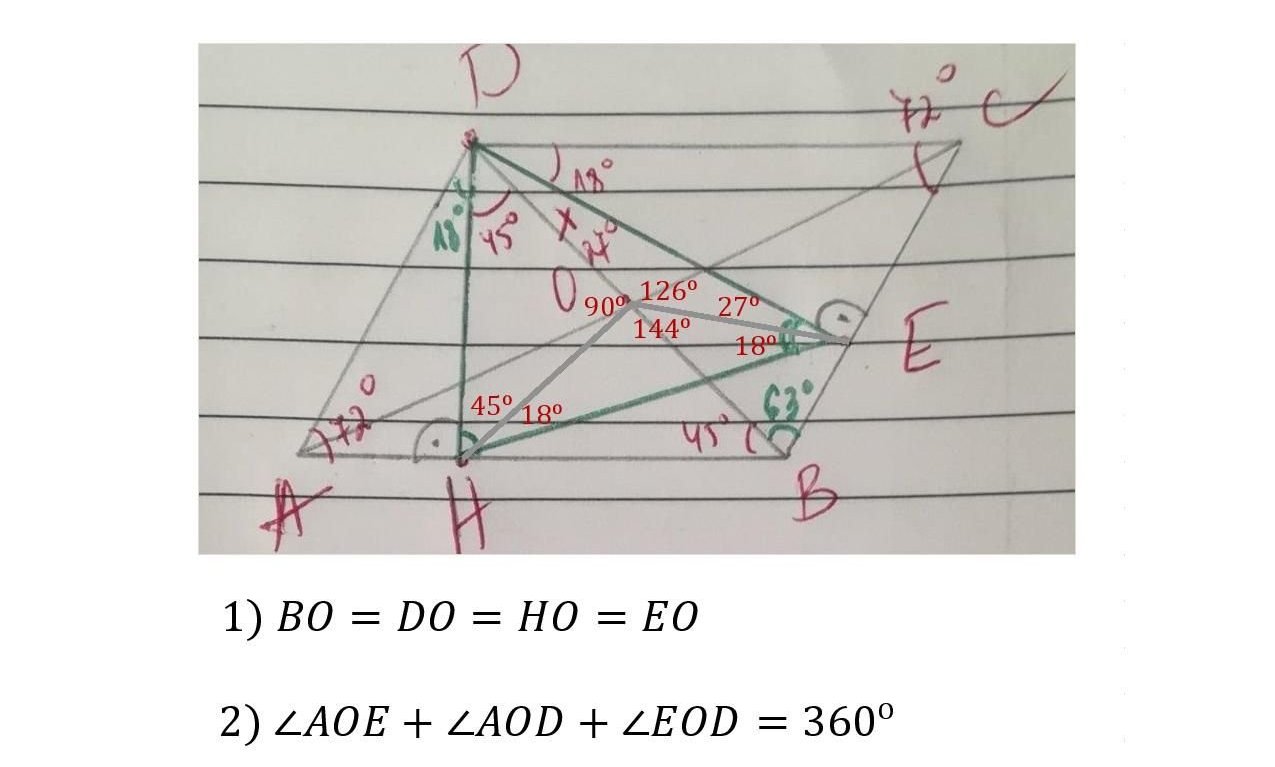 D
72° C
18°
18° 45° x 27°
O 90º 126º 27º
144º
18º E
72° 45º 18º 63°
45°
A H B
1) BO = DO = HO = EO
2) ∠AOE + ∠AOD + ∠EOD = 360º